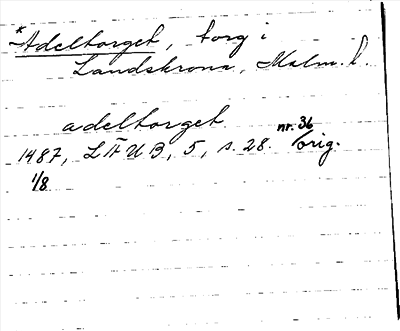 *Adeltorget, torg i
Landskrona, Malm. l.
adeltorget
1487, LÄUB, 5, s. 28. nr. 36 orig.
1/8